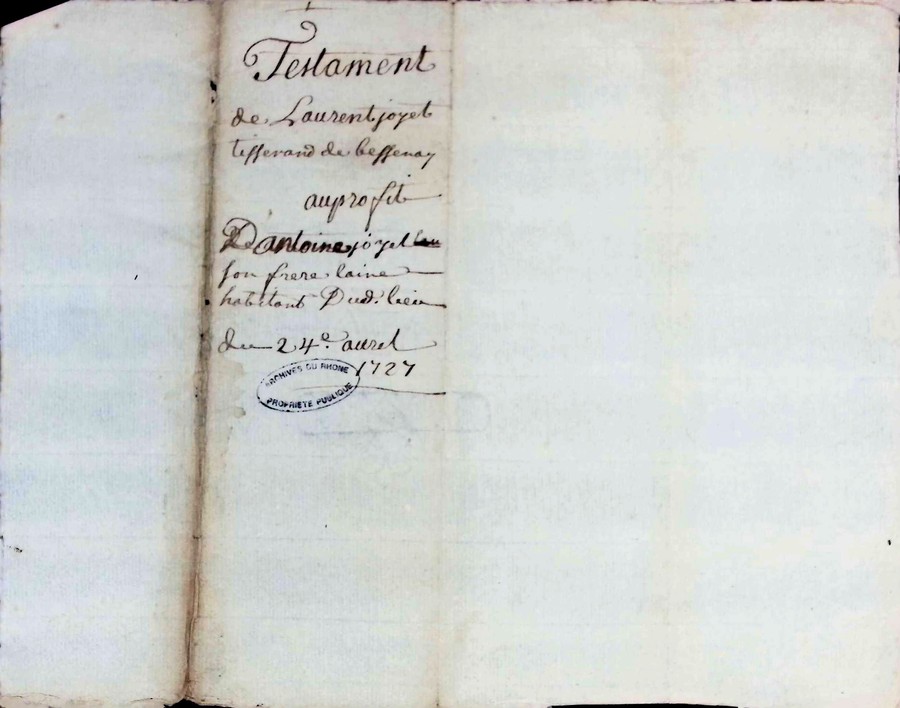 Testament
de Laurent joyet
tisserand de bessenay
au profit
D'antoine joyet
son frere laine
habitant Dud. lieu
du 24e. avril
1727
ARCHIVES DU RHONE
PROPRIETE PUBLIQUE